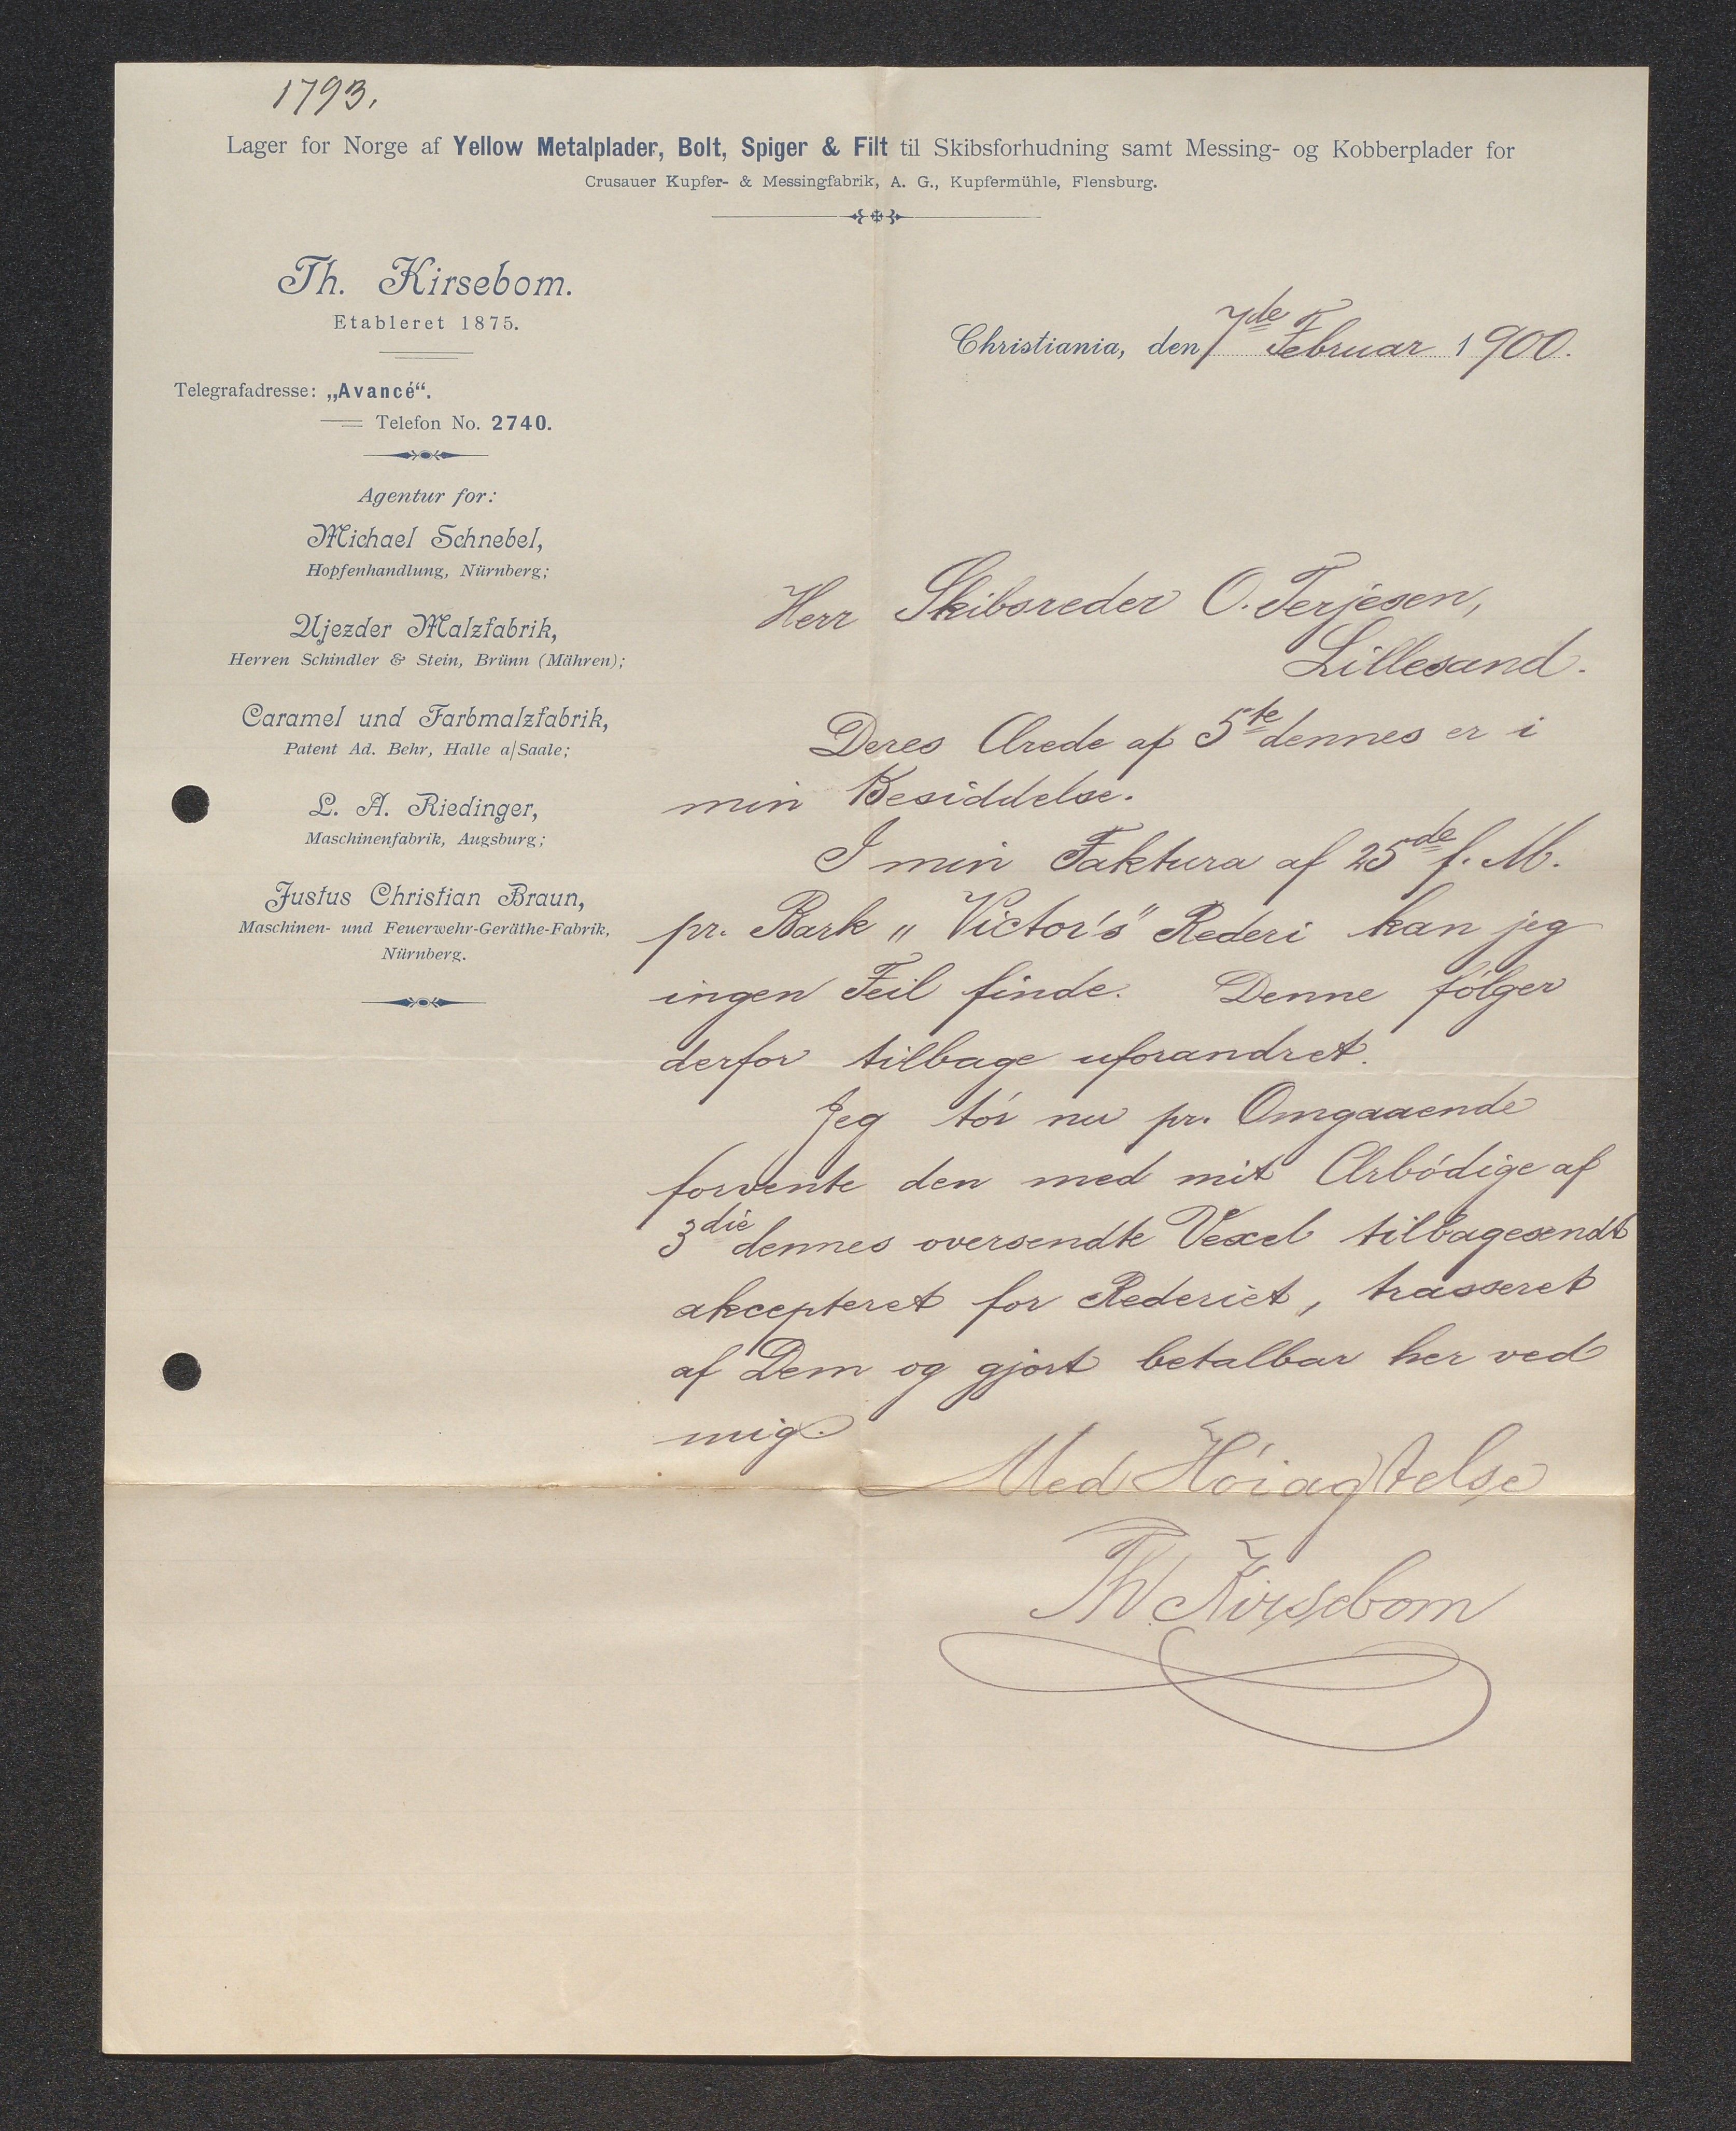 1793.
Lager for Norge af Yellow Metalplader, Bolt, Spiger & Filt til Skibsforhudning samt Messing- og Kobberplader for
Crusauer Kupfer- & Messingfabrik, A. G., Kupfermühle, Flensburg.
Th. Kirsebom.
Etableret 1875.
Telegrafadresse: „Avancé“.
Telefon No. 2740.
Agentur for:
Michael Schnebel,
Hopfenhandlung, Nürnberg;
Ujezder Malzfabrik,
Herren Schindler & Stein, Brünn (Mähren);
Caramel und Farbmalzfabrik,
Patent Ad. Behr, Halle a/Saale;
L. A. Riedinger,
Maschinenfabrik, Augsburg;
Justus Christian Braun,
Maschinen- und Feuerwehr-Geräthe-Fabrik,
Nürnberg.
Christiania, den 7de Februar 1900.
Herr Skibsreder O. Terjesen,
Lillesand.
Deres Ærede af 5te dennes er i
min Besiddelse.
I min Faktura af 25de f. M.
pr. Bark "Victor's" Rederi kan jeg
ingen Feil finde. Denne følger
derfor tilbage uforandret.
Jeg tør nu pr. Omgaaende
forvente den med mit Ærbødige af
3die dennes oversendte Vexel tilbagesendt
akcepteret for Rederiet, trasseret
af Dem og gjort betalbar her ved
mig.
Med Høiagtelse
Th. Kirsebom